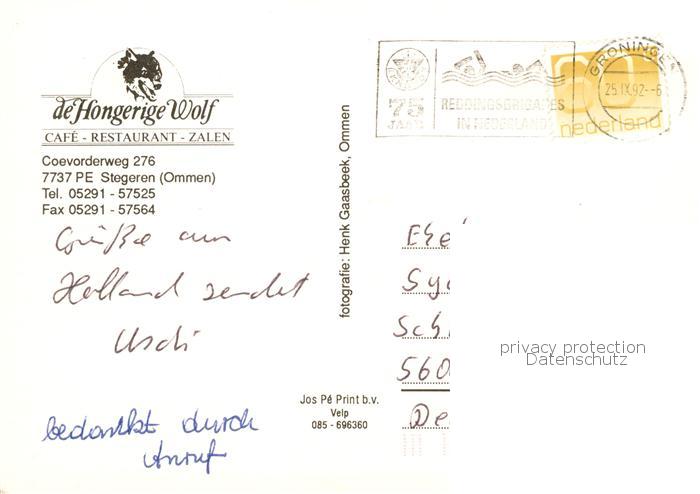 de Hongerige Wolf
CAFÉ - RESTAURANT - ZALEN
Coevorderweg 276
7737 PE Stegeren (Ommen)
Tel. 05291 - 57525
Fax 05291 - 57564
Grüße aus
Holland sendet
Uschi
bedankt durch
Anruf
fotografie: Henk Gaasbeek, Ommen
Jos Pé Print b.v.
Velp
085 - 696360
75
JAAR
REDDINGSBRIGADES
IN NEDERLAND
GRONINGEN
25.IX.92.-6
60
nederland
Ehe
Sy
Sch
560
De
privacy protection
Datenschutz